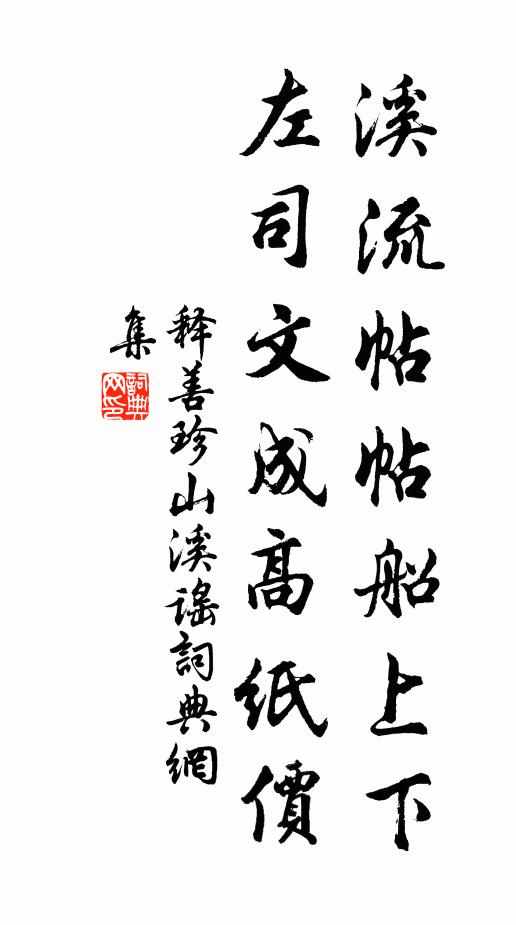 溪流帖帖船上下
左司文成高紙價
释善珍山溪謠詞典網
集
詞典
网印